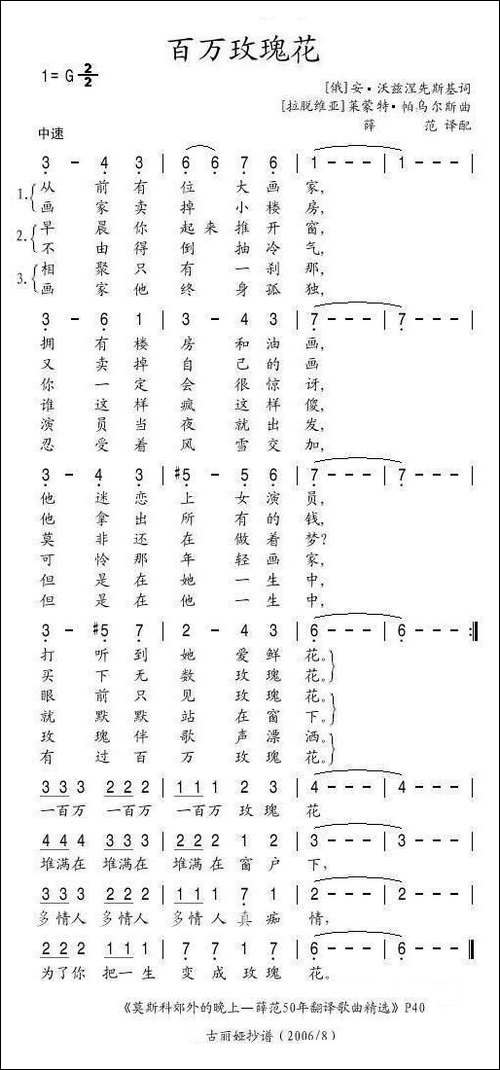 百万玫瑰花
1=G 2/2
[俄]安·沃兹涅先斯基词
[拉脱维亚]莱蒙特·帕乌尔斯曲
薛 范 译配
中速
3 - 4 3 | 6 6 7 6 | 1 - - - | 1 - - - |
1. 从 前 有 位 大 画 家,
画 家 卖 掉 小 楼 房,
2. 早 晨 你 起 来 推 开 窗,
不 由 得 倒 抽 冷 气,
3. 相 聚 只 有 一 刹 那,
画 家 他 终 身 孤 独,
3 - 6 1 | 3 - 4 3 | 7 - - - | 7 - - - |
拥 有 楼 房 和 油 画,
又 卖 掉 自 己 的 画
你 一 定 会 很 惊 讶,
谁 这 样 疯 这 样 傻,
演 员 当 夜 就 出 发,
忍 受 着 风 雪 交 加,
3 - 4 3 | #5 - 5 6 | 7 - - - | 7 - - - |
他 迷 恋 上 女 演 员,
他 拿 出 所 有 的 钱,
莫 非 还 在 做 着 梦?
可 怜 那 年 轻 画 家,
但 是 在 她 一 生 中,
但 是 在 他 一 生 中,
3 - #5 7 | 2 - 4 3 | 6 - - - | 6 - - - :|
打 听 到 她 爱 鲜 花。
买 下 无 数 玫 瑰 花。
眼 前 只 见 玫 瑰 花,
就 默 默 站 在 窗 下。
玫 瑰 伴 歌 声 漂 洒。
有 过 百 万 玫 瑰 花。
3 3 3 2 2 2 | 1 1 1 2 3 | 4 - - - | 4 - - - |
一百万 一百万 一百万 玫 瑰 花
4 4 4 3 3 3 | 2 2 2 1 2 | 3 - - - | 3 - - - |
堆满在 堆满在 堆满在 窗 户 下,
3 3 3 2 2 2 | 1 1 1 7 1 | 2 - - - | 2 - - - |
多情人 多情人 多情人 真 痴 情,
2 2 2 1 1 1 | 7 7 1 7 | 6 - - - | 6 - - - |
为了你 把一生 变 成 玫 瑰 花。
《莫斯科郊外的晚上—薛范50年翻译歌曲精选》P40
古丽娅抄谱(2006/8)